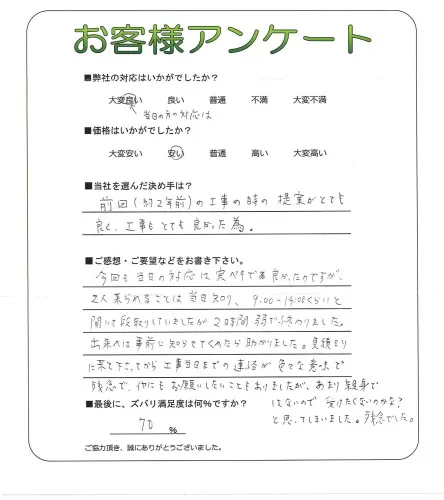 お客様アンケート
■弊社の対応はいかがでしたか?
大変良い 良い 普通 不満 大変不満
当日の方の対応は
■価格はいかがでしたか?
大変安い 安い 普通 高い 大変高い
■当社を選んだ決め手は?
前回(約2年前)の工事の時の提案がとても
良く、工事もとても良かった為。
■ご感想・ご要望などをお書き下さい。
今回も当日の対応は実べきで良かったのですが、
2人来られることは当日知り、9:00~14:00くらいと
聞いて段取りしていましたが2時間弱で終わりました。
出来れば事前に知らせてくれたら助かりました。見積もり
に来て下さってから工事当日までの連絡が色々な意味で
残念で、他にもお願いしたいこともありましたが、あまり親身で
はないので受けたくないのかな?
と思ってしまいました。残念でした。
■最後に、ズバリ満足度は何%ですか?
70 %
ご協力頂き、誠にありがとうございました。